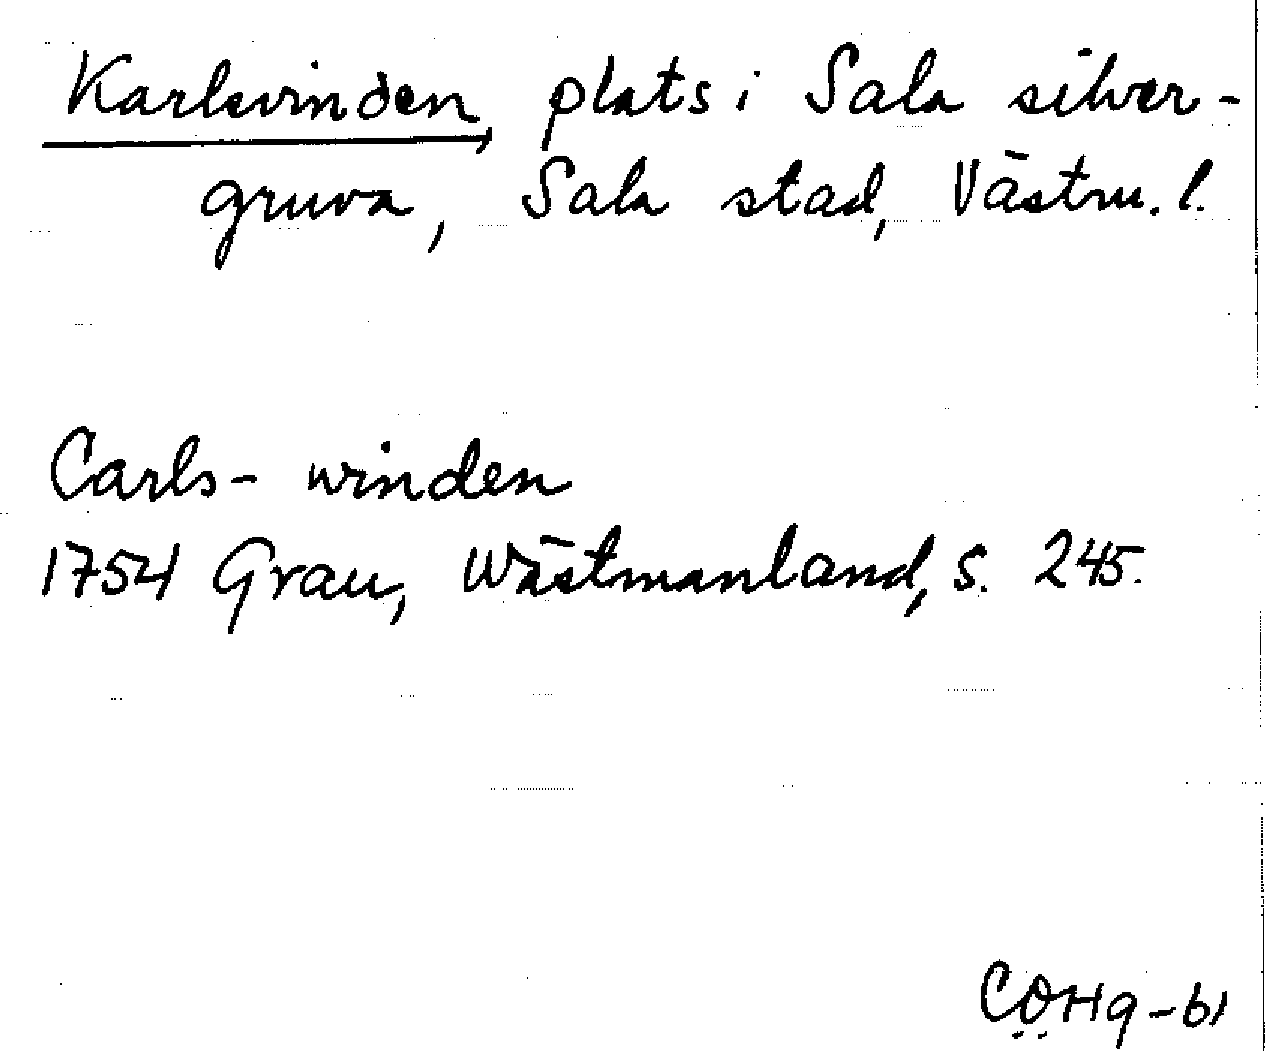 Karlsvinden, plats i Sala silver-
gruva, Sala stad, Västm. l.
Carls- winden
1754 Grau, Wästmanland, s. 245.